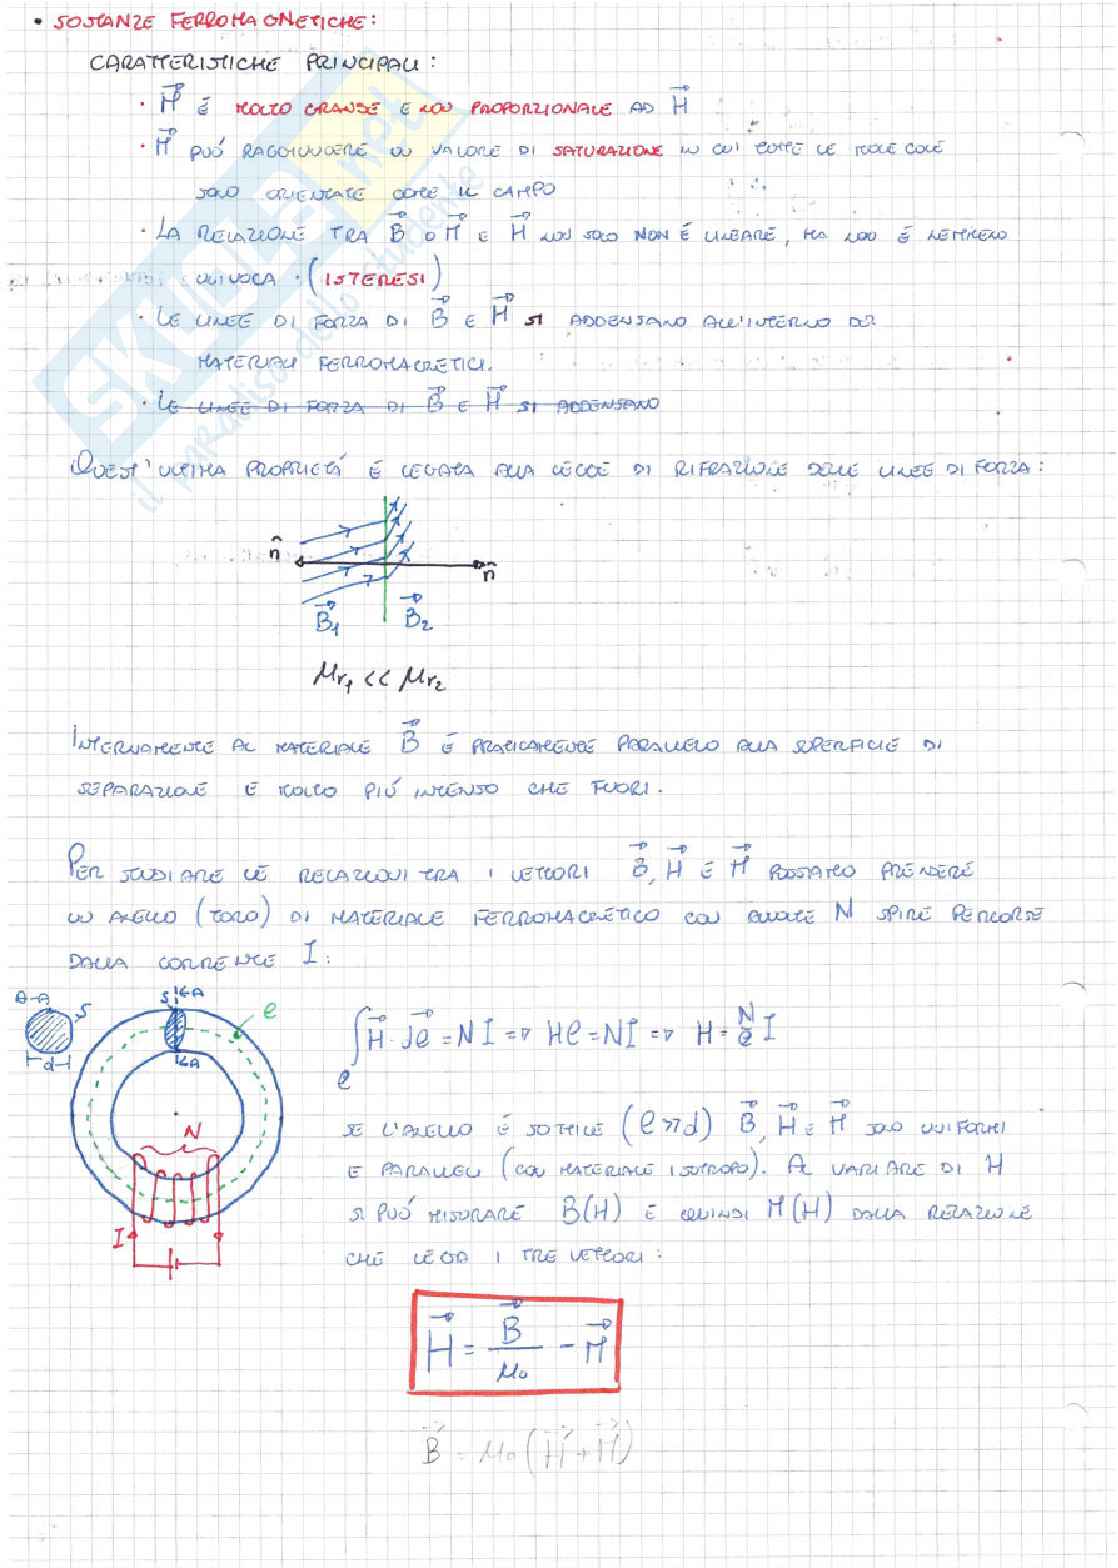 • SOSTANZE FERROMAGNETICHE:
CARATTERISTICHE PRINCIPALI:
· M⃗ È MOLTO GRANDE E NON PROPORZIONALE AD H⃗
· M⃗ PUÓ RAGGIUNGERE UN VALORE DI SATURAZIONE IN CUI TUTTE LE MOLECOLE
SONO ORIENTATE COME IL CAMPO
· LA RELAZIONE TRA B⃗ O M⃗ E H⃗ NON SOLO NON È LINEARE, MA NON È NEMMENO
UNIVOCA. (ISTERESI)
· LE LINEE DI FORZA DI B⃗ E H⃗ SI ADDENSANO ALL'INTERNO DEI
MATERIALI FERROMAGNETICI.
· LE LINEE DI FORZA DI B⃗ E H⃗ SI ADDENSANO
QUEST'ULTIMA PROPRIETÁ È LEGATA ALLA LEGGE DI RIFRAZIONE DELLE LINEE DI FORZA:
n̂
n̂
B⃗₁ B⃗₂
μr₁ << μr₂
INTERNAMENTE AL MATERIALE B⃗ È PRATICAMENTE PARALLELO ALLA SUPERFICIE DI
SEPARAZIONE E MOLTO PIÚ INTENSO CHE FUORI.
PER STUDIARE LE RELAZIONI TRA I VETTORI B⃗, H⃗ E M⃗ POSSIAMO PRENDERE
UN ANELLO (TORO) DI MATERIALE FERROMAGNETICO CON AVVOLTE N SPIRE PERCORSE
DALLA CORRENTE I:
A-A
S
d
S
A
A
ℓ
N
I
∫ℓ H⃗ · dℓ⃗ = NI => Hℓ = NI => H = N/ℓ I
SE L'ANELLO È SOTTILE (ℓ>>d) B⃗, H⃗ E M⃗ SONO UNIFORMI
E PARALLELI (CON MATERIALE ISOTROPO). AL VARIARE DI H
SI PUÓ MISURARE B(H) E QUINDI M(H) DALLA RELAZIONE
CHE LEGA I TRE VETTORI:
H⃗ = B⃗/μ₀ - M⃗
B⃗ = μ₀ (H⃗ + M⃗)
SKUOLA.net
il paradiso dello studente